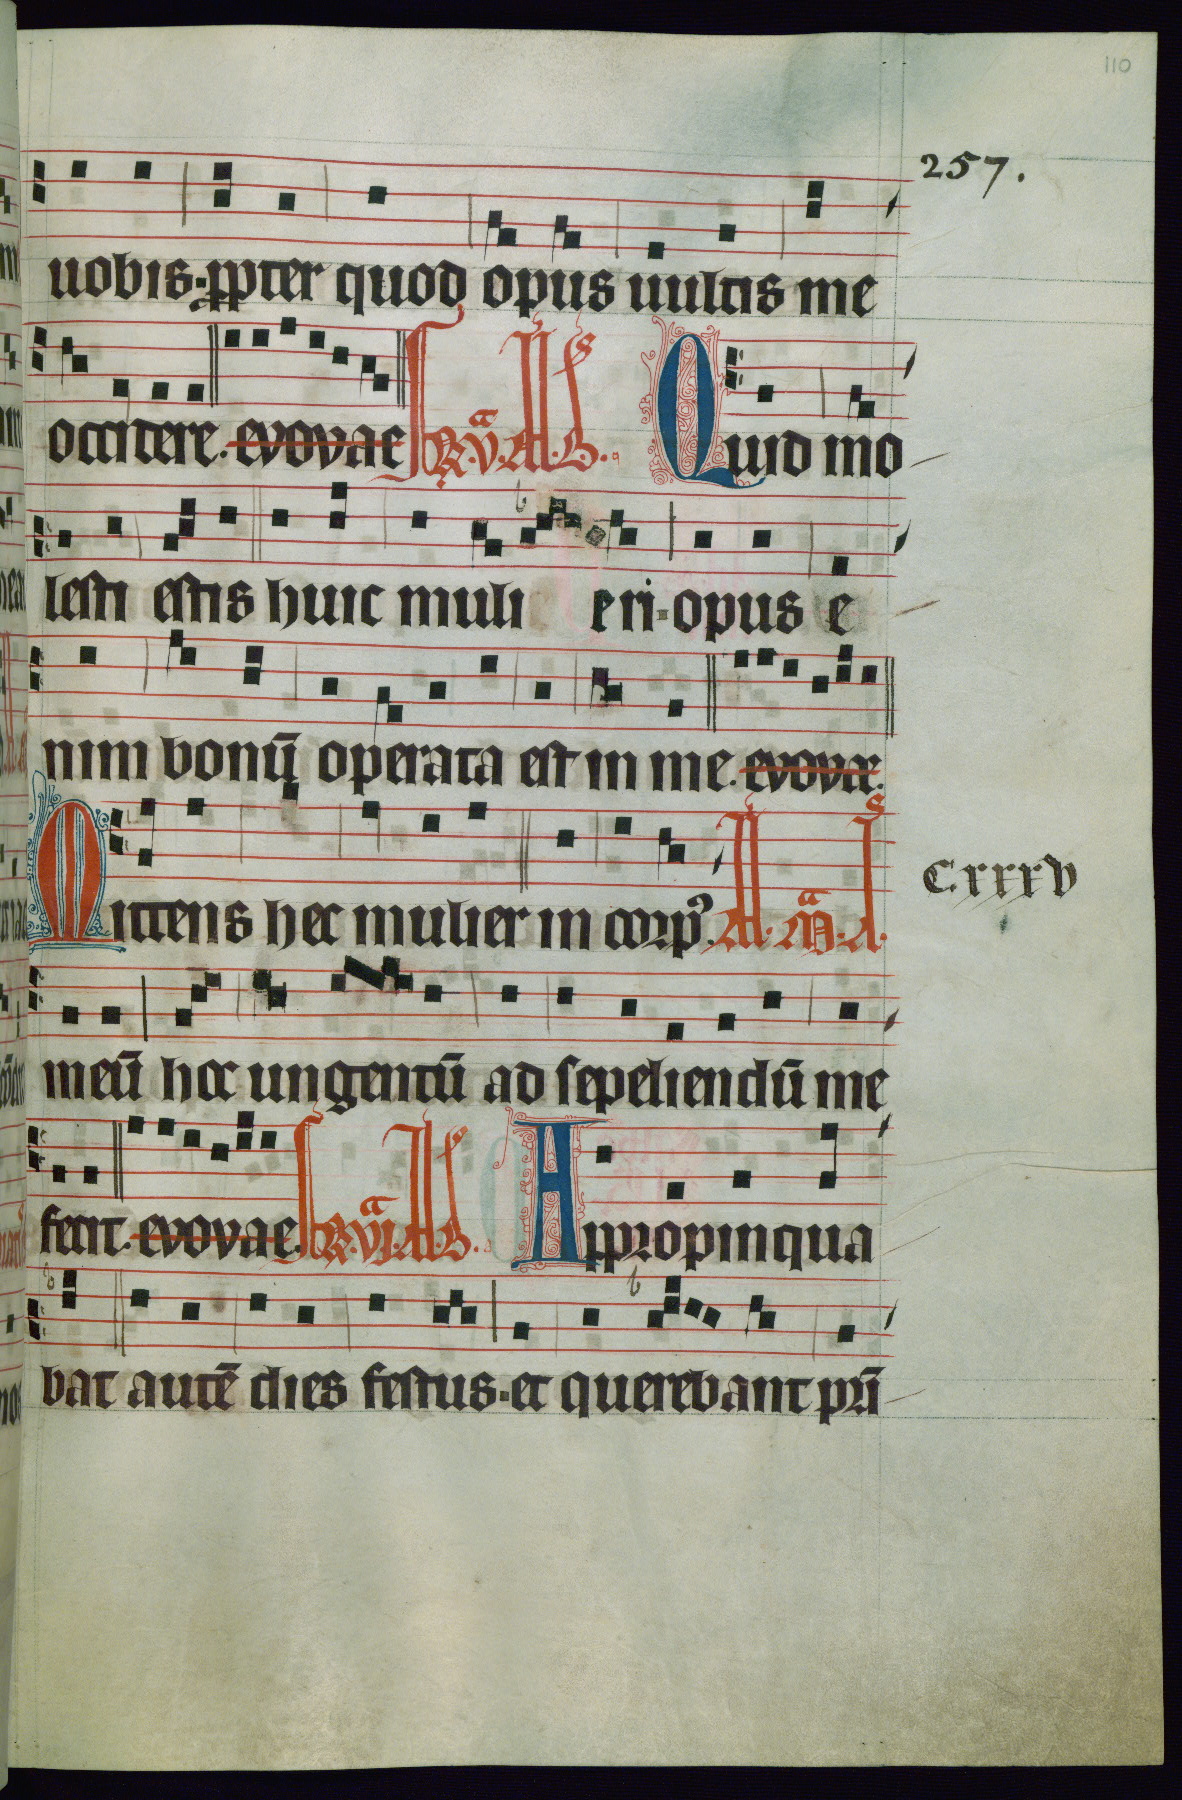 110
257.
uobis· ꝓpter quod opus uultis me
occidere. evovae Quid mo
lesti estis huic muli eri· opus e
nim bonū operata est in me. evovae.
Mittens hec mulier in corpꝰ.
Cxxxv
meū hoc ungentū ad sepeliendū me
fecit. evovae. Appropinqua
bat autē dies festus· et querebant